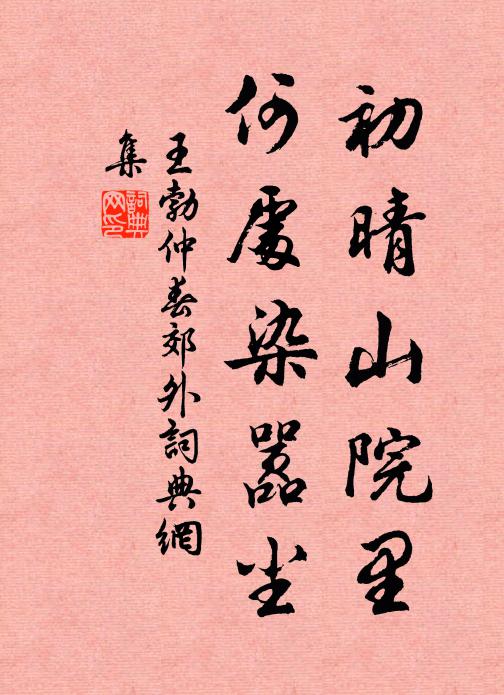 初晴山院里
何處染囂尘
王勃仲春郊外詞典網
集
詞典
网印